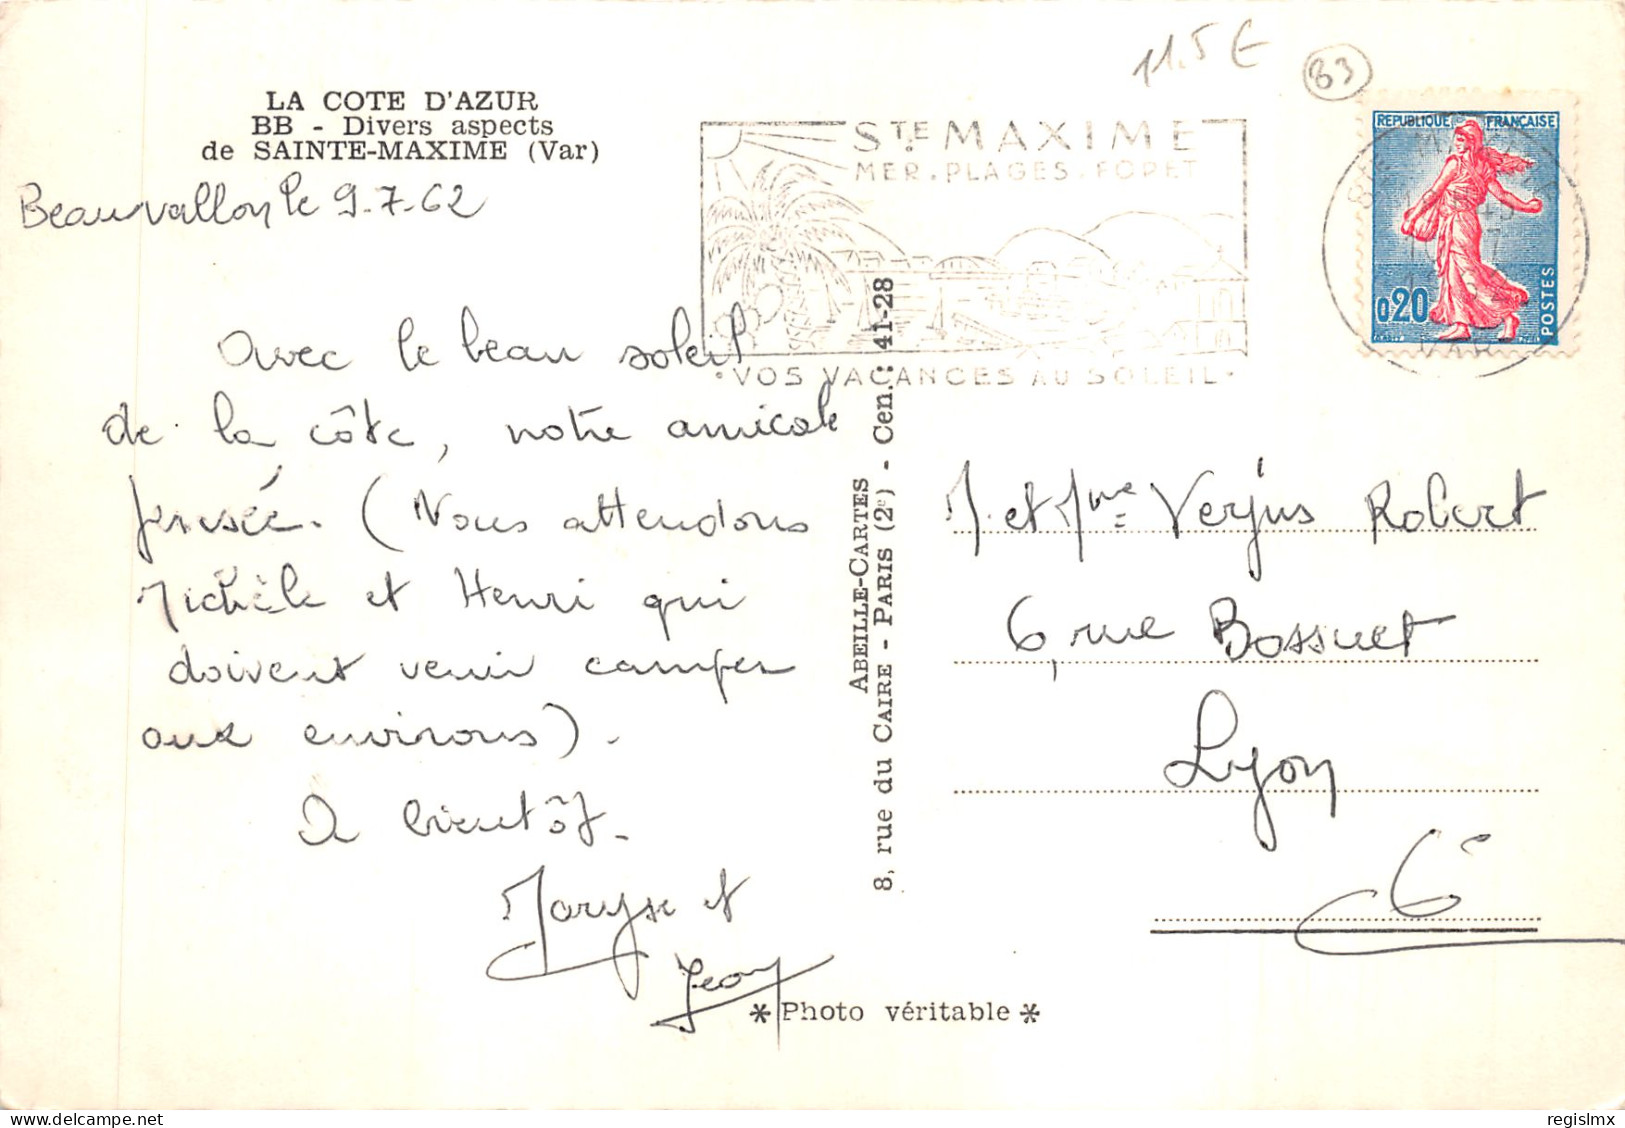 11.5 €
83
LA COTE D'AZUR
BB - Divers aspects
de SAINTE-MAXIME (Var)
Beauvallon le 9-7-62
STE MAXIME
MER. PLAGES. FORET
VOS VACANCES AU SOLEIL
REPUBLIQUE FRANÇAISE
0,20
POSTES
VAR
Avec le beau soleil
de la côte, notre amicale
pensée. (Nous attendons
Michèle et Henri qui
doivent venir camper
aux environs).
A bientôt.
Maryse et
Jean
ABEILLE-CARTES
8, rue du CAIRE - PARIS (2e) - Cen. : 41-28
M. et Mme Verjus Robert
6, rue Bossuet
Lyon
6e
* Photo véritable *
regislmx